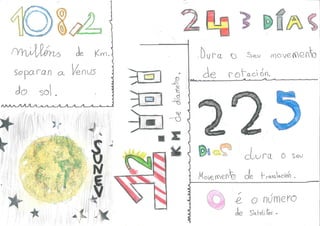 108,2
millóns de Km.
separan a Venus
do sol.
VENUS
12.000
KM de diametro.
243 DÍAS
Dura o seu movemento
de rotación.
225
DIAS dura o seu
Movemento de translación.
0 é o número
de Satelites.